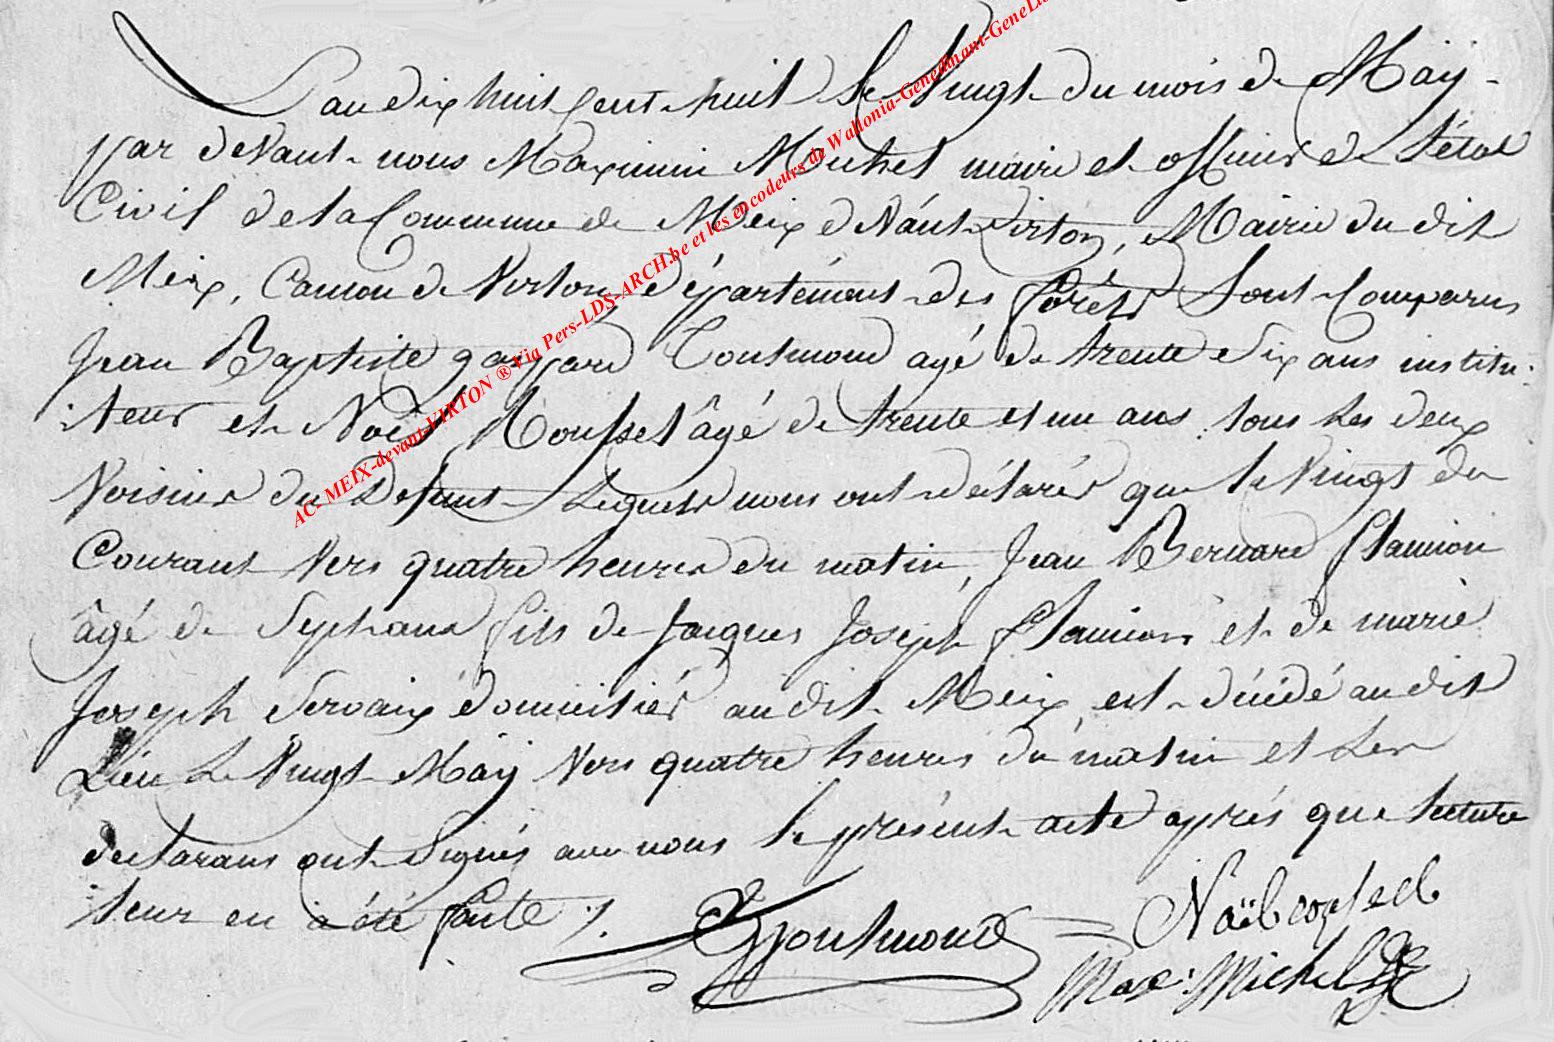 L'an dix huit cent huit le Vingt du mois de Maÿ
par deVant nous Maximin Michel maire et officier de l'état
Civil de la Commune de Meix dVánt Virton, Mairie du dit
Meix, Canton de Virton département des foréts Sont Comparus
Jean Baptiste gaspard agé de trente Six ans institu:
:teur et Noël âgé de trente et un ans tous les deux
Voisins du Defunt Lequels nous ont déclarés que le Vingt du
Courant Vers quatre heures du matin, Jean Bernard flamion
âgé de Sept ans fils de Jacques Joseph flamion et de marie
Joseph Servaix domicilies audit Meix, est décédé audit
Lieu Le Vingt Maÿ Vers quatre heures du matin et Les
declarans ont Signés avec nous le présent acte aprés que lecture
leur en à été faite ./.
Naël
Max: Michel
AC- MEIX-devant-VIRTON ® Via Pers-LDS-ARCH.be et les encodeurs de Wallonia-Genedinant-GeneLi